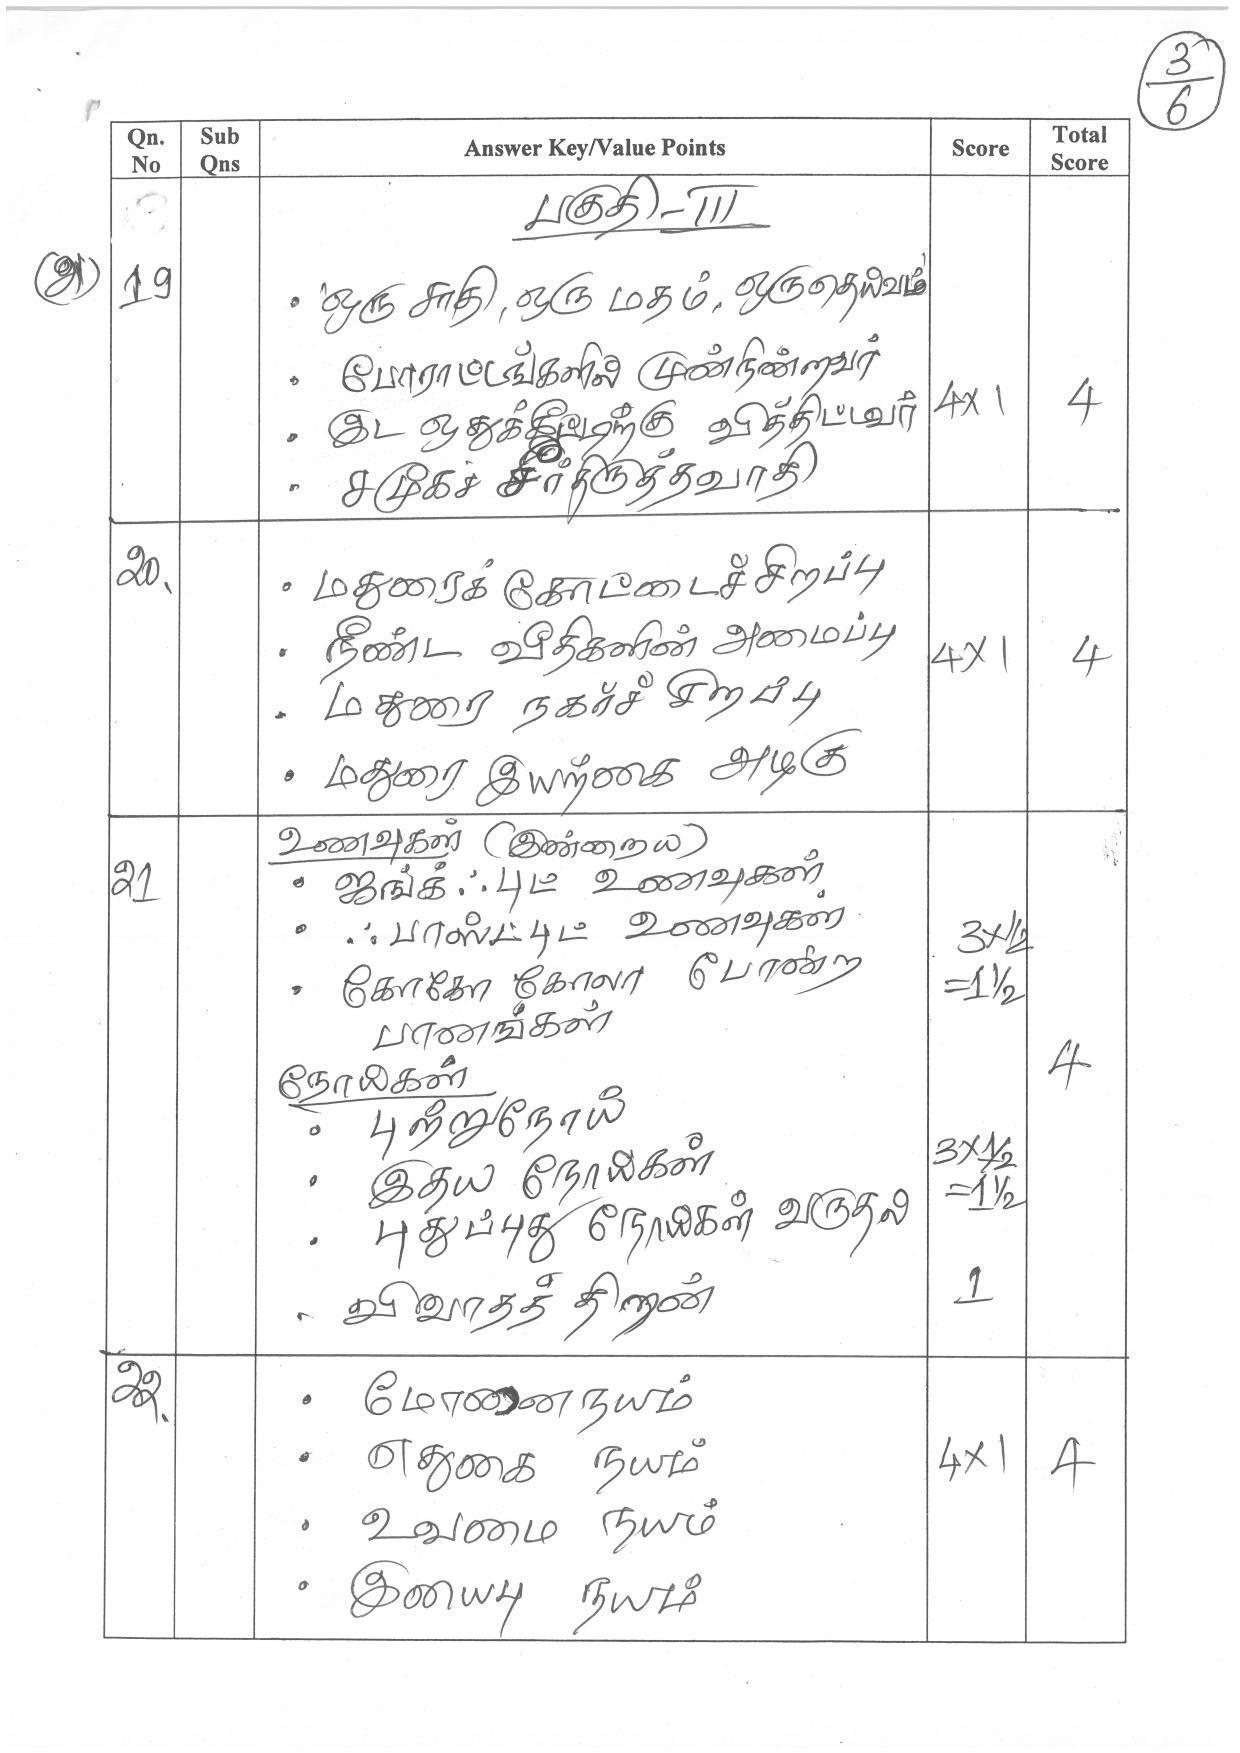 3/6
Qn. No | Sub Qns | Answer Key/Value Points | Score | Total Score
பகுதி - III
(அ) 19
• ஒரு சாதி, ஒரு மதம், ஒரு தெய்வம்
• போராட்டங்களில் முன்நின்றவர்
• இட ஒதுக்கீட்டிற்கு வித்திட்டவர் 4x1 4
• சமூகச் சீர்திருத்தவாதி
20.
• மதுரைக் கோட்டைச் சிறப்பு
• நீண்ட வீதிகளின் அமைப்பு 4x1 4
• மதுரை நகர்ச் சிறப்பு
• மதுரை இயற்கை அழகு
21
உணவுகள் (இன்றைய)
• ஜங்க் ஃபுட் உணவுகள்
• ஃபாஸ்ட்புட் உணவுகள் 3x½
• கோகோ கோலா போன்ற =1½
பானங்கள்
4
நோய்கள்
• புற்றுநோய்
• இதய நோய்கள் 3x½
• புதுப்புது நோய்கள் வருதல் =1½
• விவாதத் திறன் 1
22.
• மோனை நயம்
• எதுகை நயம் 4x1 4
• உவமை நயம்
• இயைபு நயம்